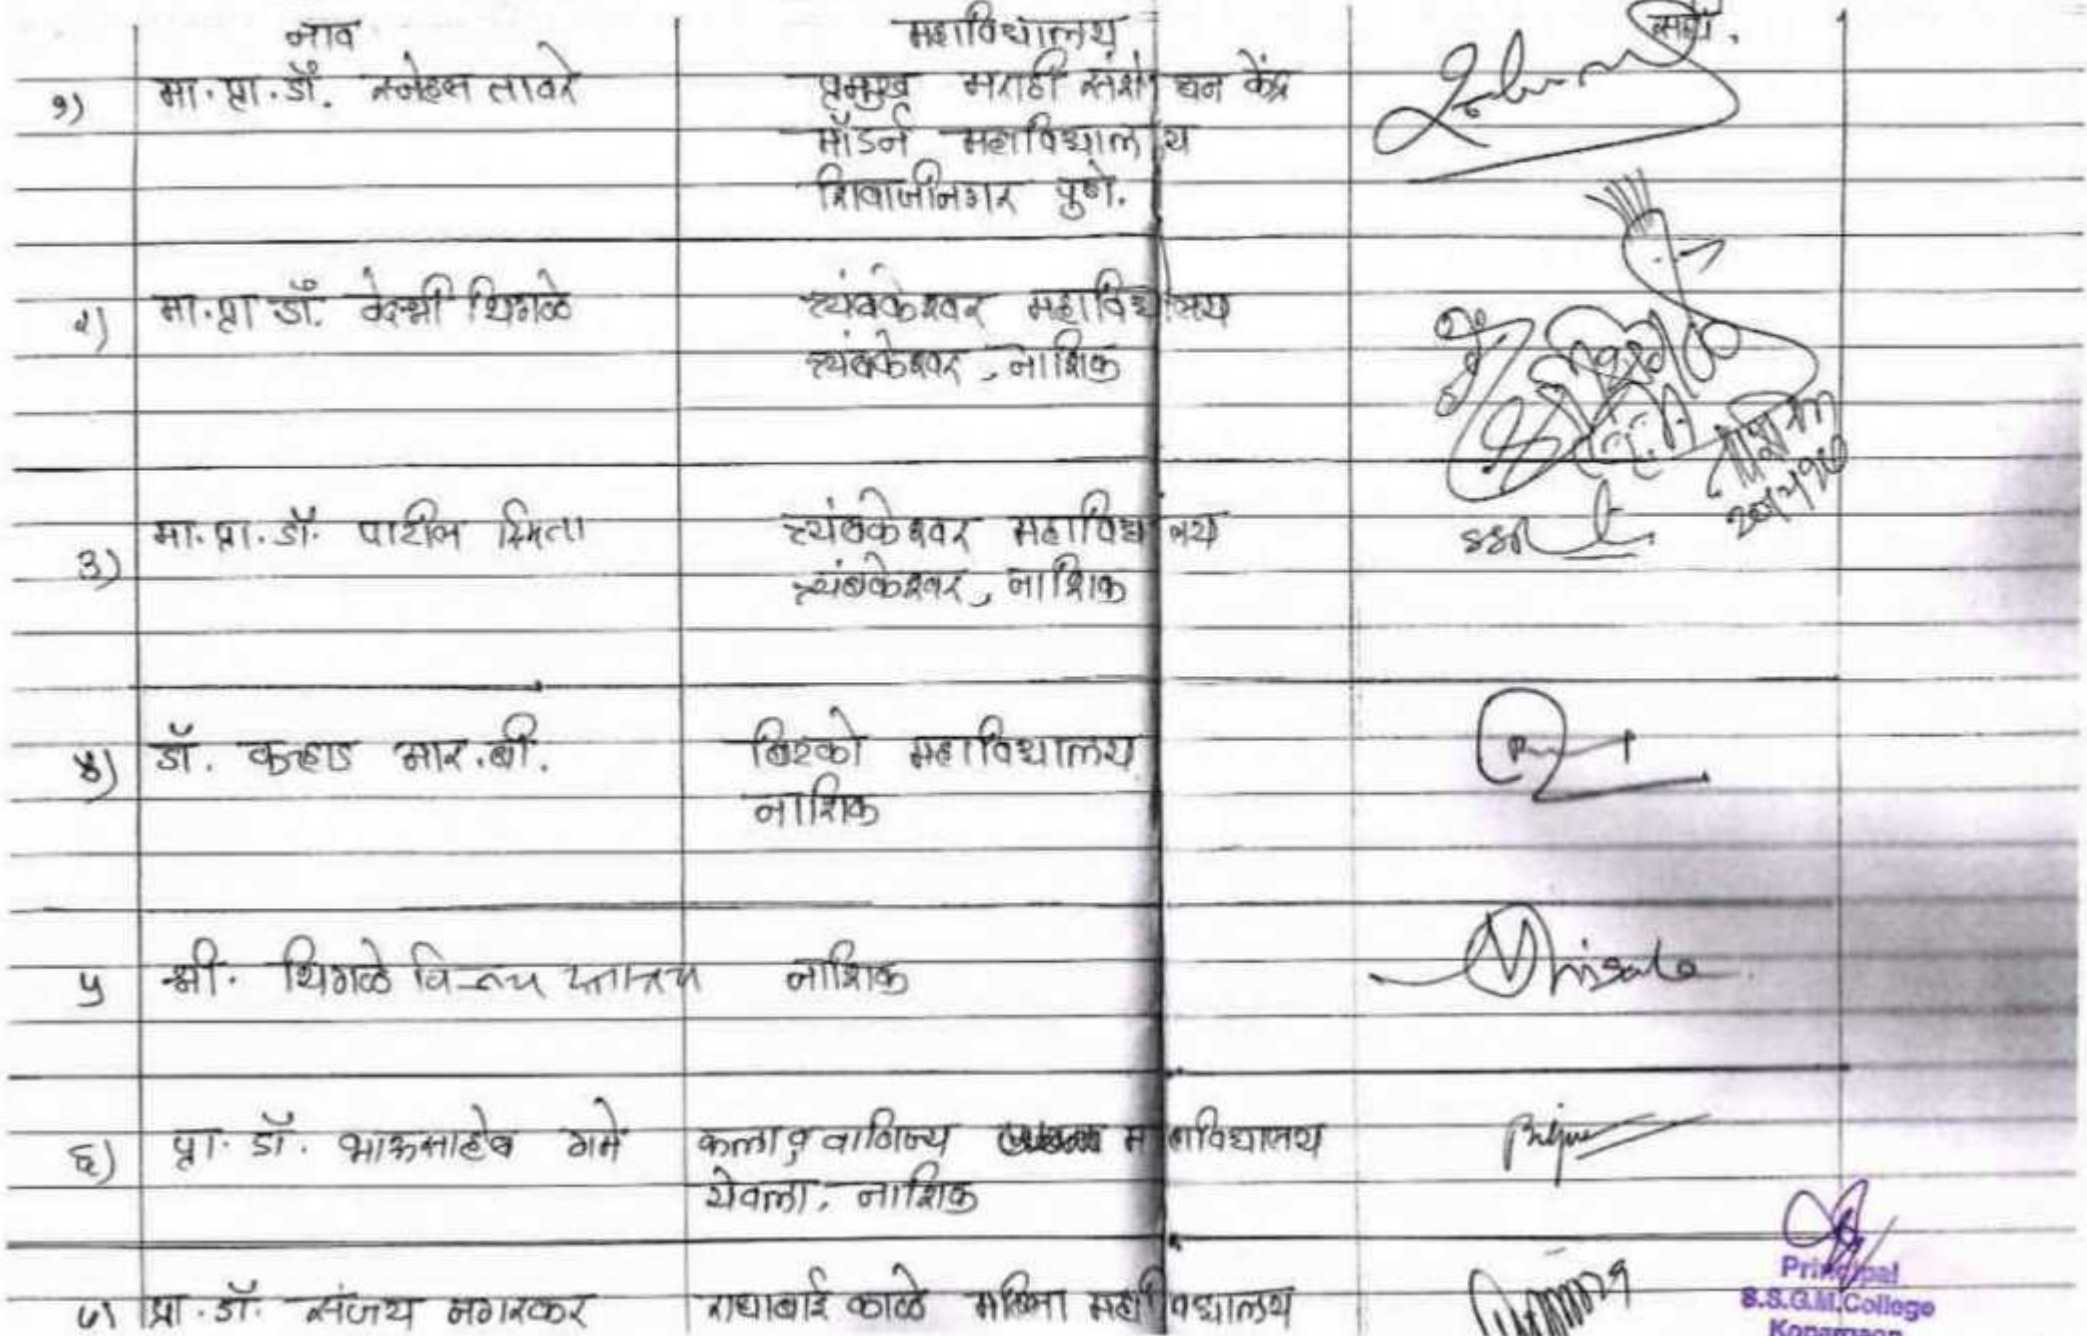 नाव महाविद्यालय सही.
१) मा. प्रा. डॉ. स्नेहल तावरे प्रमुख मराठी संशोधन केंद्र
मॉडर्न महाविद्यालय
शिवाजीनगर पुणे.
२) मा. प्रा डॉ. वेदश्री थिगळे त्र्यंबकेश्वर महाविद्यालय
त्र्यंबकेश्वर, नाशिक
३) मा. प्रा. डॉ. पाटील स्मिता त्र्यंबकेश्वर महाविद्यालय
त्र्यंबकेश्वर, नाशिक
४) डॉ. कऱ्हाड आर. बी. बिटको महाविद्यालय
नाशिक
५ श्री. थिगळे नाशिक
Thigale
६) प्रा. डॉ. भाऊसाहेब गमे कला व वाणिज्य महाविद्यालय
येवला, नाशिक
७) प्रा. डॉ. संजय नगरकर राधाबाई काळे महिला महाविद्यालय
Principal
S.S.G.M. College
Kopargaon